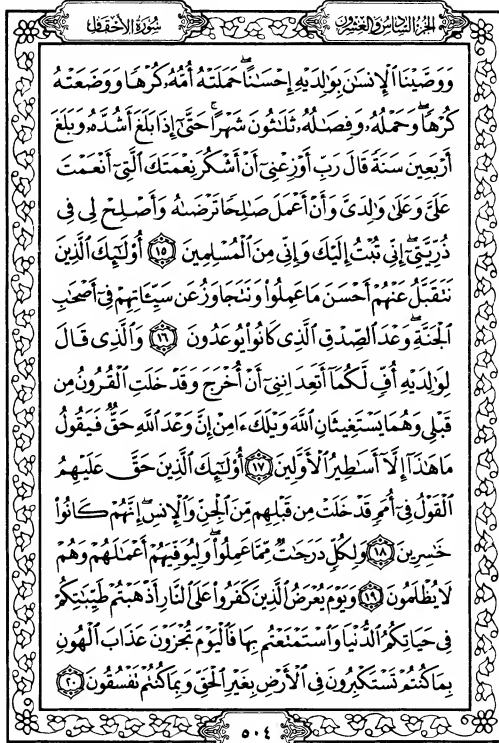 سُورَةُ الأَحْقَافِ
الجُزْءُ السَّادِسُ وَالعِشْرُونَ
وَوَصَّيْنَا ٱلْإِنسَٰنَ بِوَٰلِدَيْهِ إِحْسَٰنًا ۖ حَمَلَتْهُ أُمُّهُۥ كُرْهًا وَوَضَعَتْهُ
كُرْهًا ۖ وَحَمْلُهُۥ وَفِصَٰلُهُۥ ثَلَٰثُونَ شَهْرًا ۚ حَتَّىٰٓ إِذَا بَلَغَ أَشُدَّهُۥ وَبَلَغَ
أَرْبَعِينَ سَنَةً قَالَ رَبِّ أَوْزِعْنِىٓ أَنْ أَشْكُرَ نِعْمَتَكَ ٱلَّتِىٓ أَنْعَمْتَ
عَلَىَّ وَعَلَىٰ وَٰلِدَىَّ وَأَنْ أَعْمَلَ صَٰلِحًا تَرْضَىٰهُ وَأَصْلِحْ لِى فِى
ذُرِّيَّتِىٓ ۖ إِنِّى تُبْتُ إِلَيْكَ وَإِنِّى مِنَ ٱلْمُسْلِمِينَ ١٥ أُو۟لَٰٓئِكَ ٱلَّذِينَ
نَتَقَبَّلُ عَنْهُمْ أَحْسَنَ مَا عَمِلُوا۟ وَنَتَجَاوَزُ عَن سَيِّـَٔاتِهِمْ فِىٓ أَصْحَٰبِ
ٱلْجَنَّةِ ۖ وَعْدَ ٱلصِّدْقِ ٱلَّذِى كَانُوا۟ يُوعَدُونَ ١٦ وَٱلَّذِى قَالَ
لِوَٰلِدَيْهِ أُفٍّ لَّكُمَآ أَتَعِدَانِنِىٓ أَنْ أُخْرَجَ وَقَدْ خَلَتِ ٱلْقُرُونُ مِن
قَبْلِى وَهُمَا يَسْتَغِيثَانِ ٱللَّهَ وَيْلَكَ ءَامِنْ إِنَّ وَعْدَ ٱللَّهِ حَقٌّ فَيَقُولُ
مَا هَٰذَآ إِلَّآ أَسَٰطِيرُ ٱلْأَوَّلِينَ ١٧ أُو۟لَٰٓئِكَ ٱلَّذِينَ حَقَّ عَلَيْهِمُ
ٱلْقَوْلُ فِىٓ أُمَمٍ قَدْ خَلَتْ مِن قَبْلِهِم مِّنَ ٱلْجِنِّ وَٱلْإِنسِ ۖ إِنَّهُمْ كَانُوا۟
خَٰسِرِينَ ١٨ وَلِكُلٍّ دَرَجَٰتٌ مِّمَّا عَمِلُوا۟ ۖ وَلِيُوَفِّيَهُمْ أَعْمَٰلَهُمْ وَهُمْ
لَا يُظْلَمُونَ ١٩ وَيَوْمَ يُعْرَضُ ٱلَّذِينَ كَفَرُوا۟ عَلَى ٱلنَّارِ أَذْهَبْتُمْ طَيِّبَٰتِكُمْ
فِى حَيَاتِكُمُ ٱلدُّنْيَا وَٱسْتَمْتَعْتُم بِهَا فَٱلْيَوْمَ تُجْزَوْنَ عَذَابَ ٱلْهُونِ
بِمَا كُنتُمْ تَسْتَكْبِرُونَ فِى ٱلْأَرْضِ بِغَيْرِ ٱلْحَقِّ وَبِمَا كُنتُمْ تَفْسُقُونَ ٢٠
٥٠٤